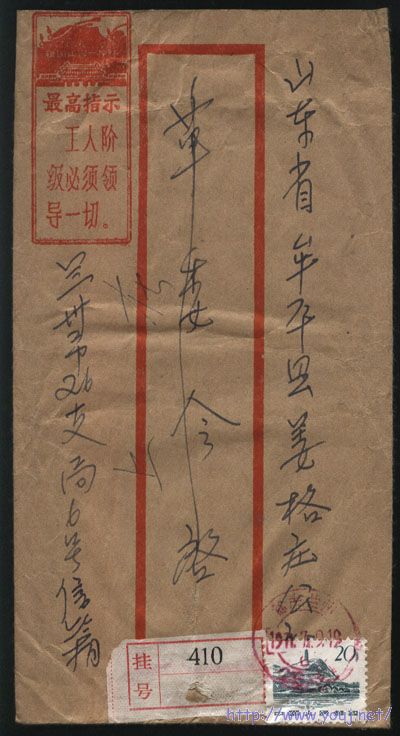 山东省牟平县姜格庄公社
革委会 启
兰州市26支局6号信箱
最高指示
工人阶
级必须领
导一切。
挂号
410
20
http://www.youj.net/